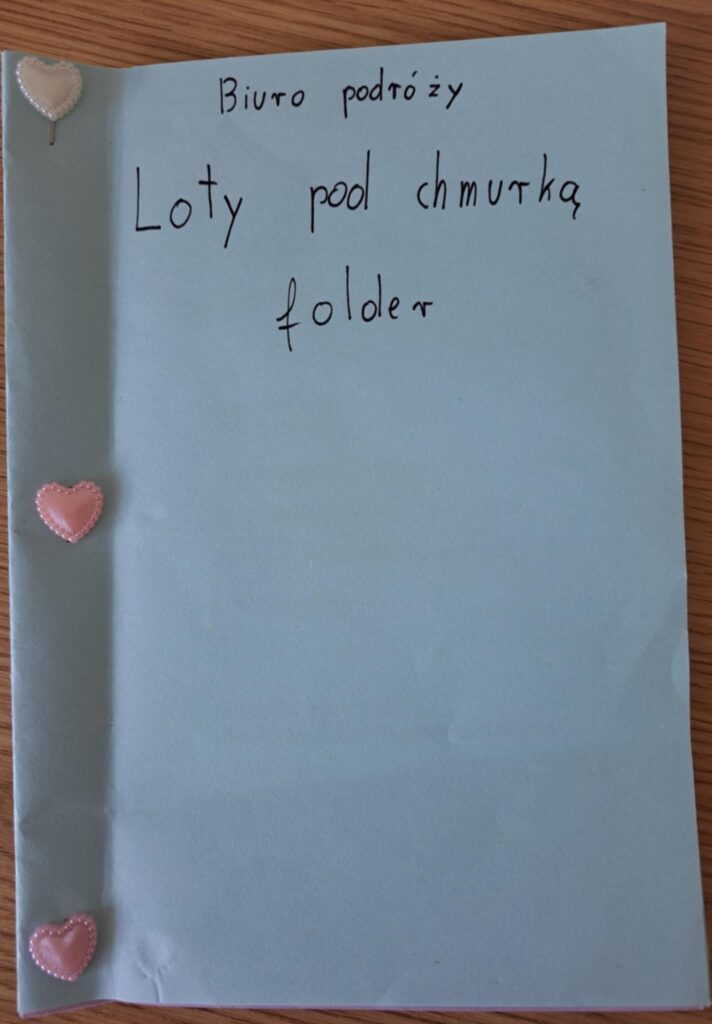 Biuro podróży
Loty pod chmurką
folder